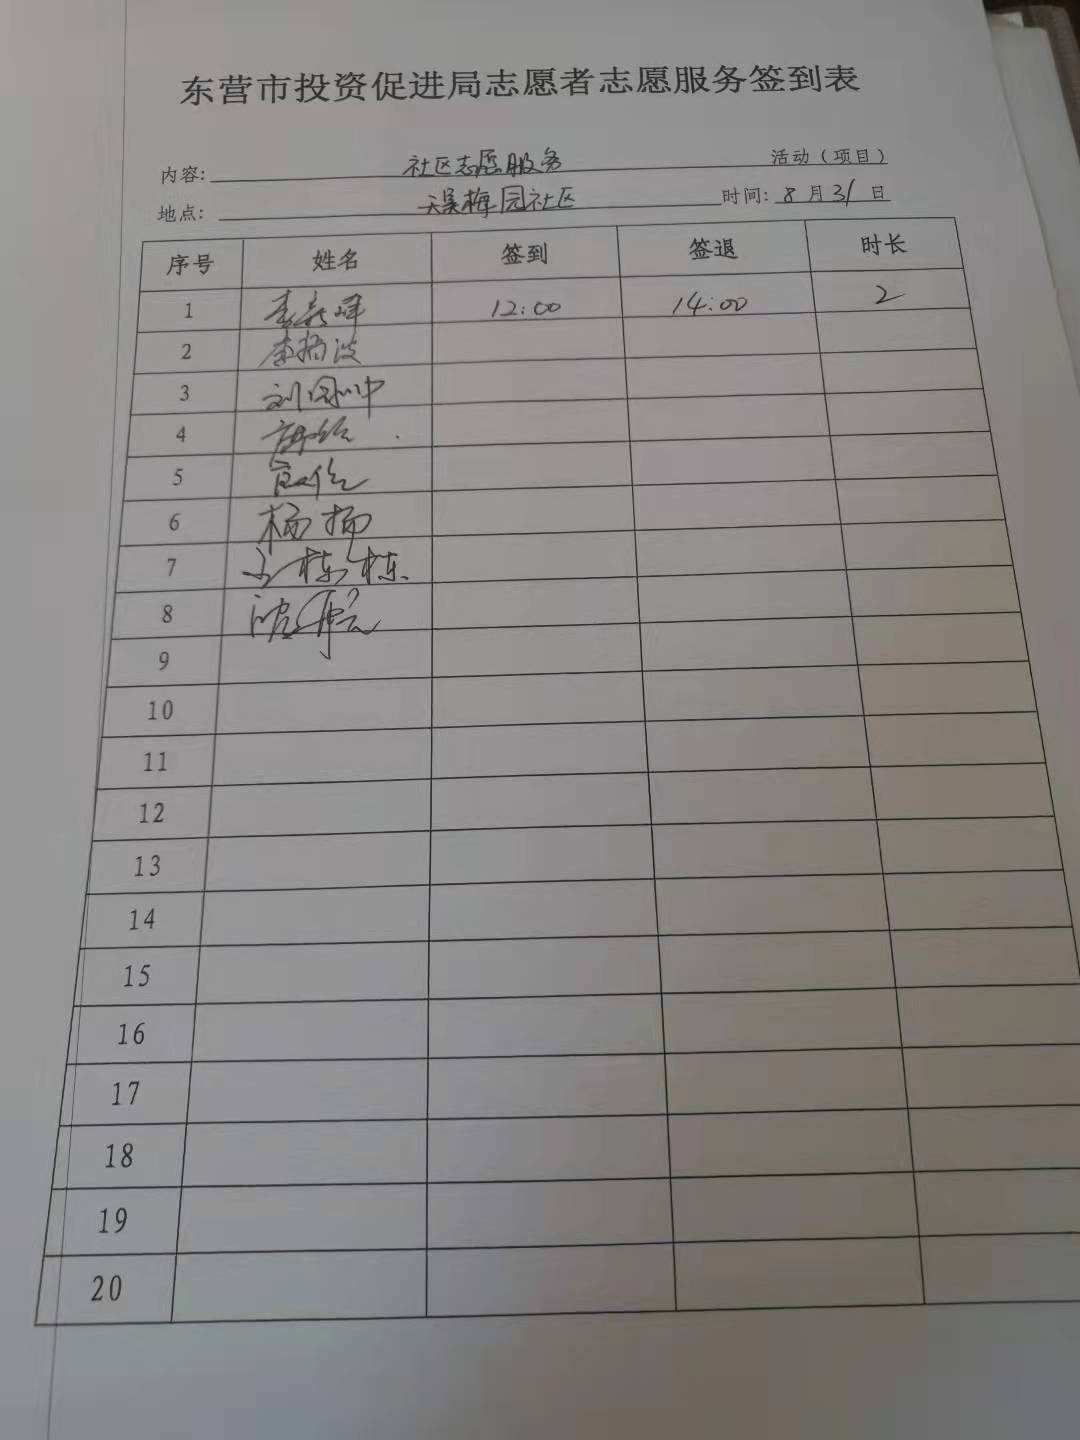 东营市投资促进局志愿者志愿服务签到表
内容: 社区志愿服务 活动（项目）
地点: 梅园社区 时间: 8 月 31 日
序号 姓名 签到 签退 时长
1 李 峰 12:00 14:00 2
2 李 波
3 刘 中
4
5
6 杨扬
7 王栋栋
8
9
10
11
12
13
14
15
16
17
18
19
20